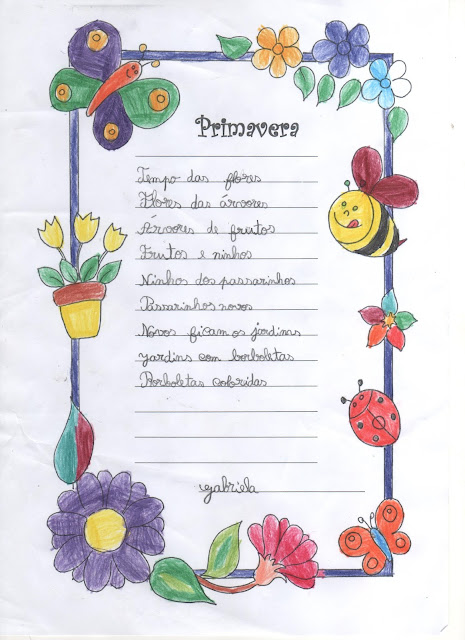 Primavera
Tempo das flores
Flores das árvores
Árvores de frutos
Frutos e ninhos
Ninhos dos passarinhos
Passarinhos novos
Novos ficam os jardins
Jardins com borboletas
Borboletas coloridas
Gabriela